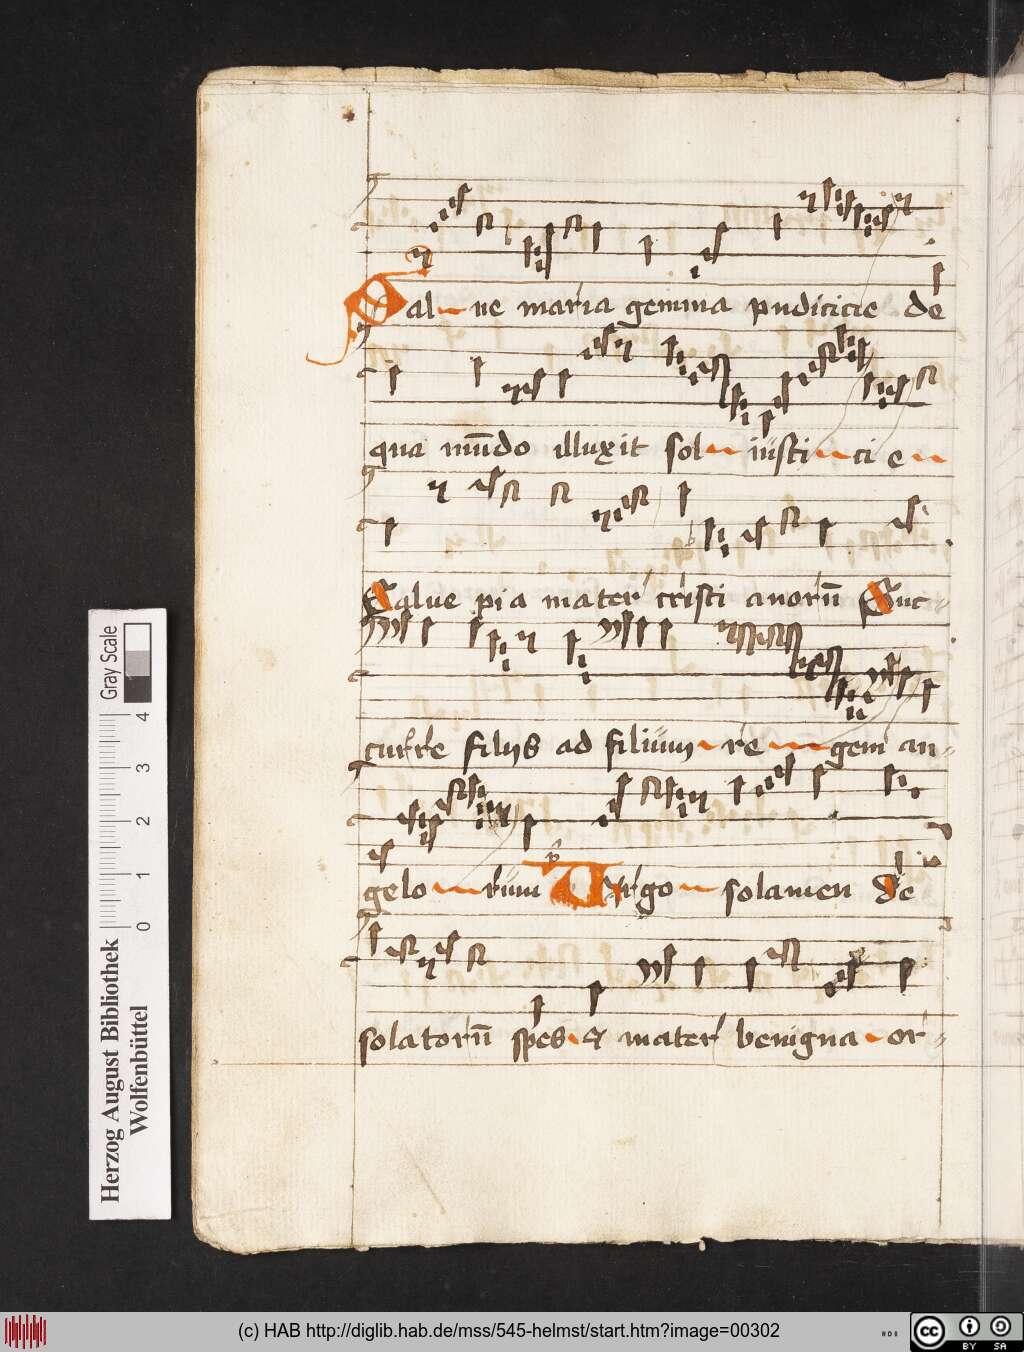 Sal ue maria gemma pudicicie de
qua mūdo illuxit sol iusti ci e
Salue pia mater cristi anorū Suc-
curre filiis ad filium re gem an-
gelo rum Virgo solamen de
solatorū spes & mater benigna or-
Gray Scale
4
3
2
1
0
Herzog August Bibliothek
Wolfenbüttel
(c) HAB http://diglib.hab.de/mss/545-helmst/start.htm?image=00302
cc BY SA